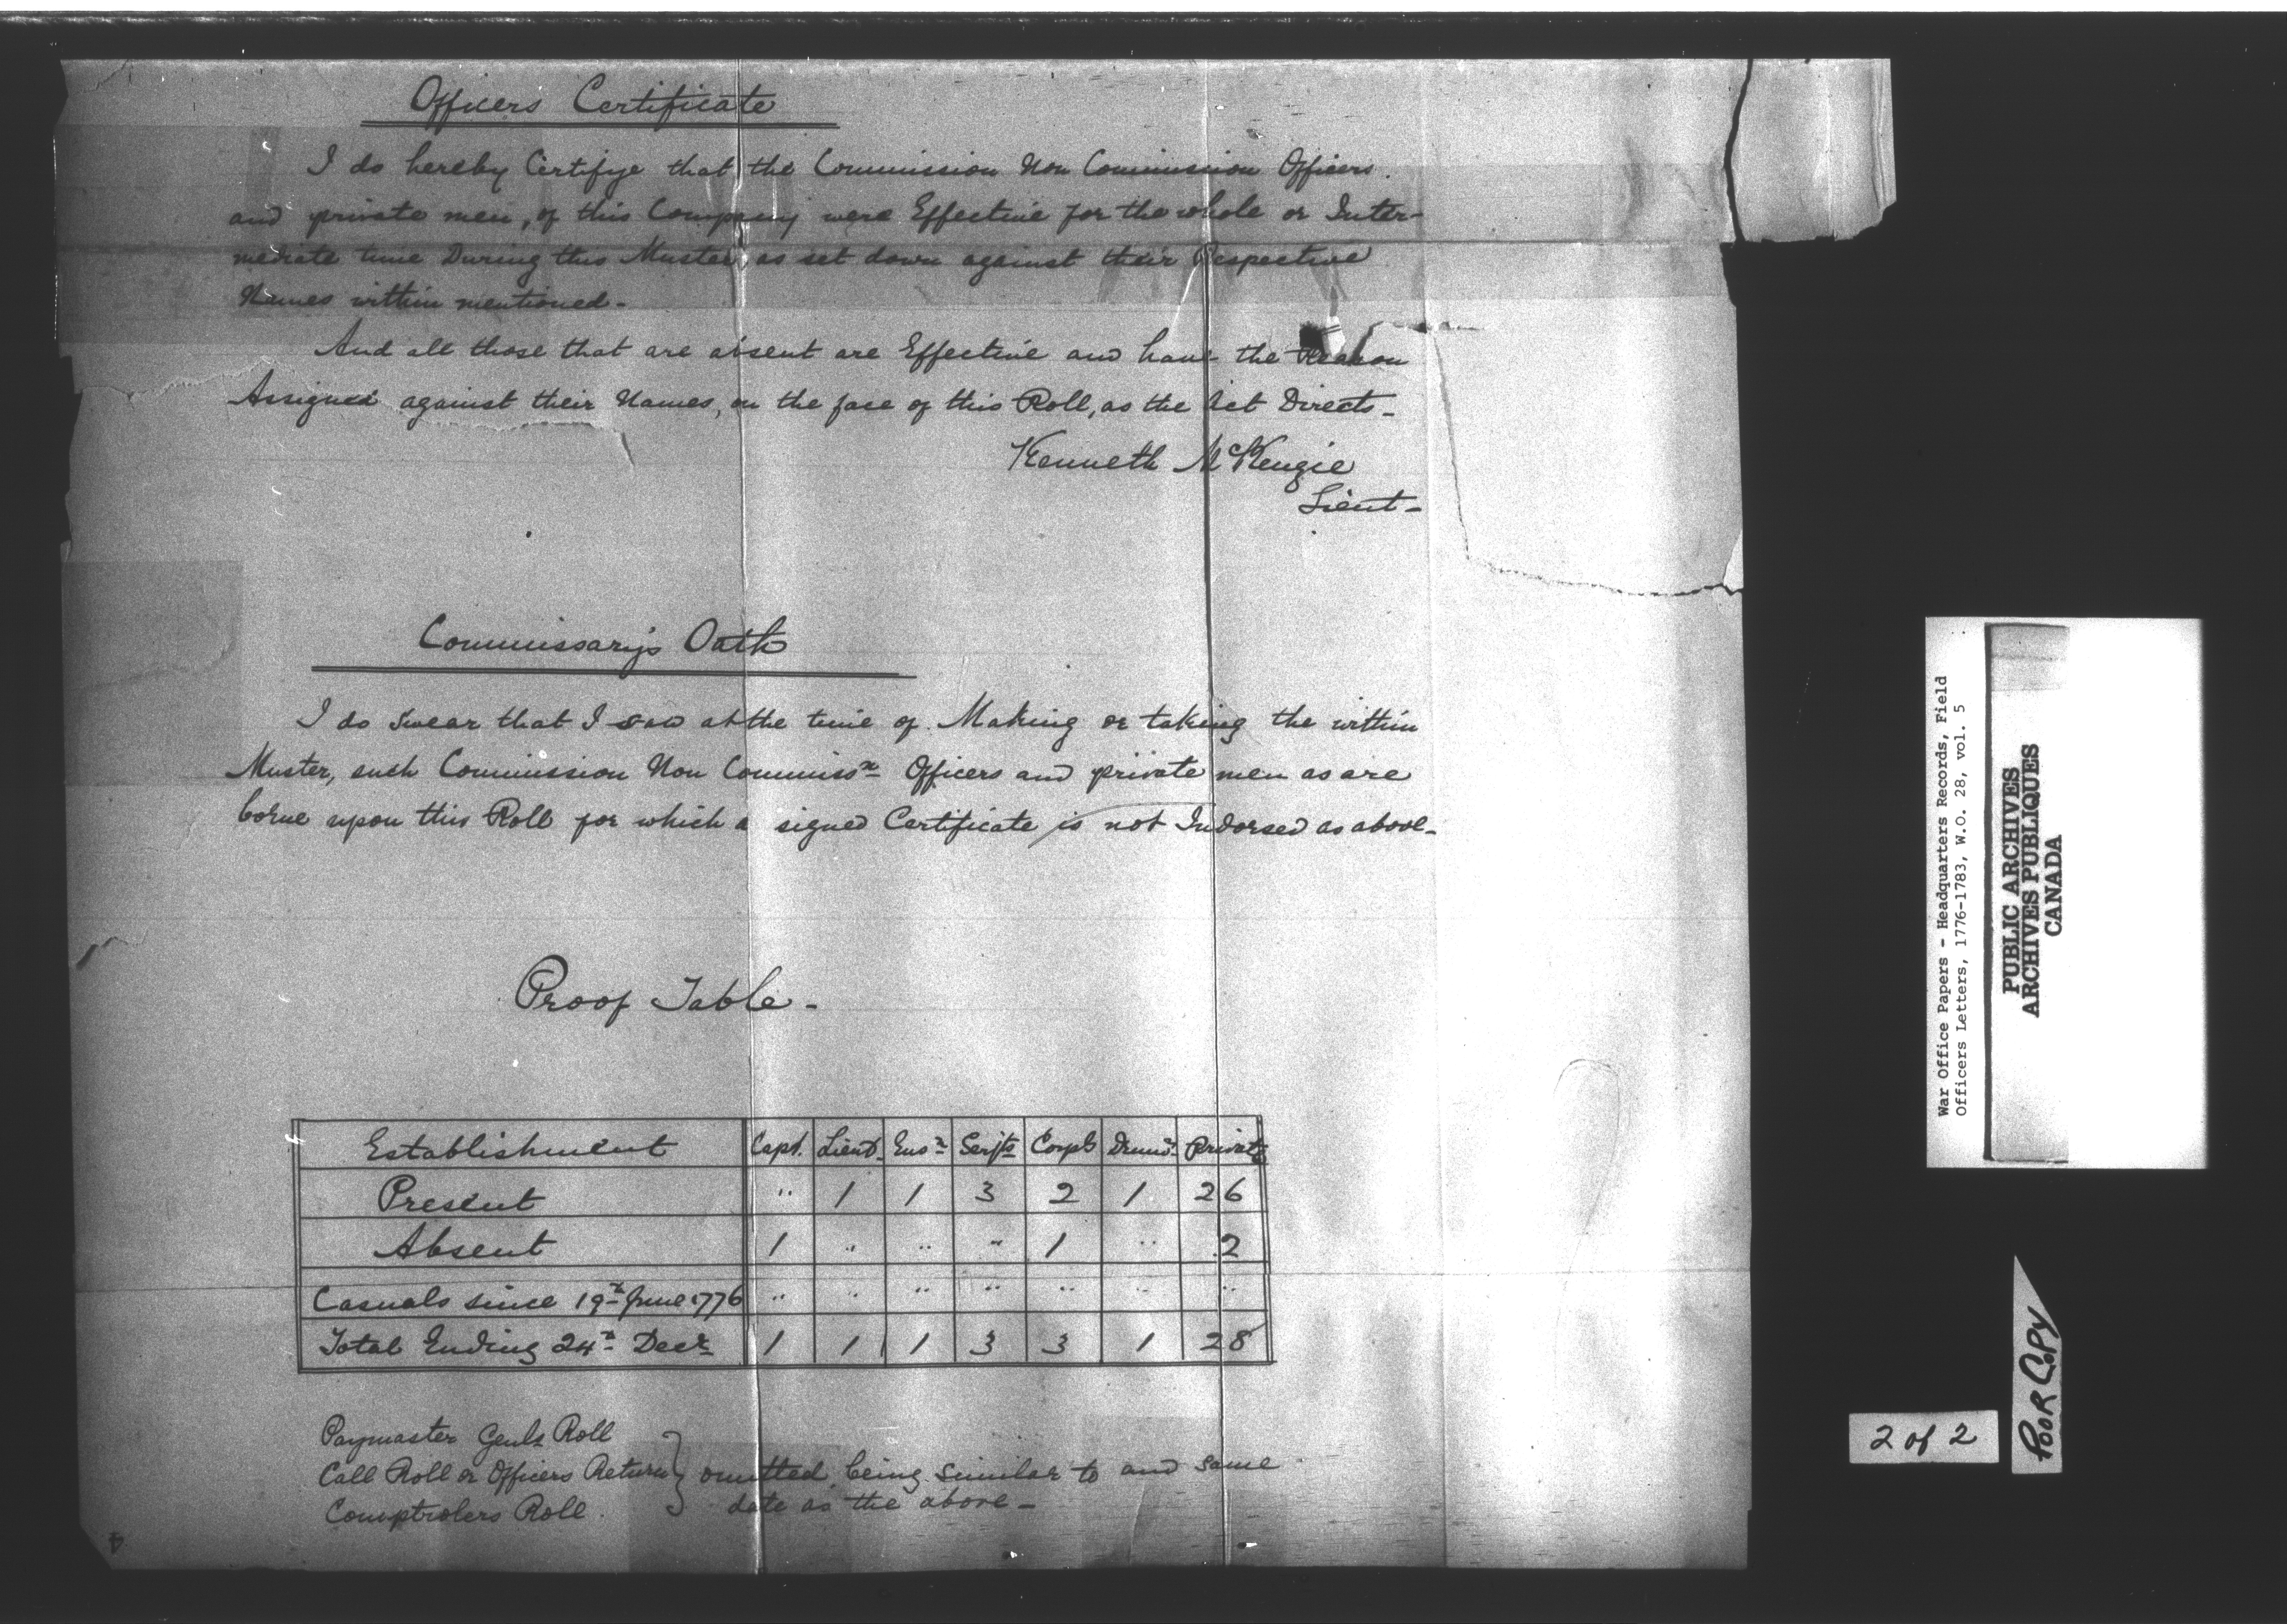 Officers Certificate
I do hereby Certifye that the Commission Non Commission Officers.
and private men, of this Company were Effective for the whole or Inter-
mediate time During this Muster, as set down against their Respective
Names within mentioned -
And all those that are absent are Effective and have the Reason
Assigned against their Names, on the face of this Roll, as the Act Directs -
Kenneth McKenzie
Lieut -
Commissarys Oath
I do Swear that I saw at the time of Making or taking the within
Muster, such Commission Non Commissn Officers and private men as are
borne upon this Roll for which a signed Certificate is not Indorsed as above -
Proof Table -
Establishment Capt. Lieut. Ensn Serjts Corpls Drumr Private
Present " 1 1 3 2 1 26
Absent 1 " " " 1 " 2
Casuals since 19th June 1776 " " " " " " "
Total Ending 24th Decr 1 1 1 3 3 1 28
Paymaster Genls Roll
Call Roll or Officers Return } omitted being similar to and same
Comptrolers Roll. date as the above -
War Office Papers - Headquarters Records, Field
Officers Letters, 1776-1783, W.O. 28, vol. 5
PUBLIC ARCHIVES
ARCHIVES PUBLIQUES
CANADA
2 of 2
POOR COPY